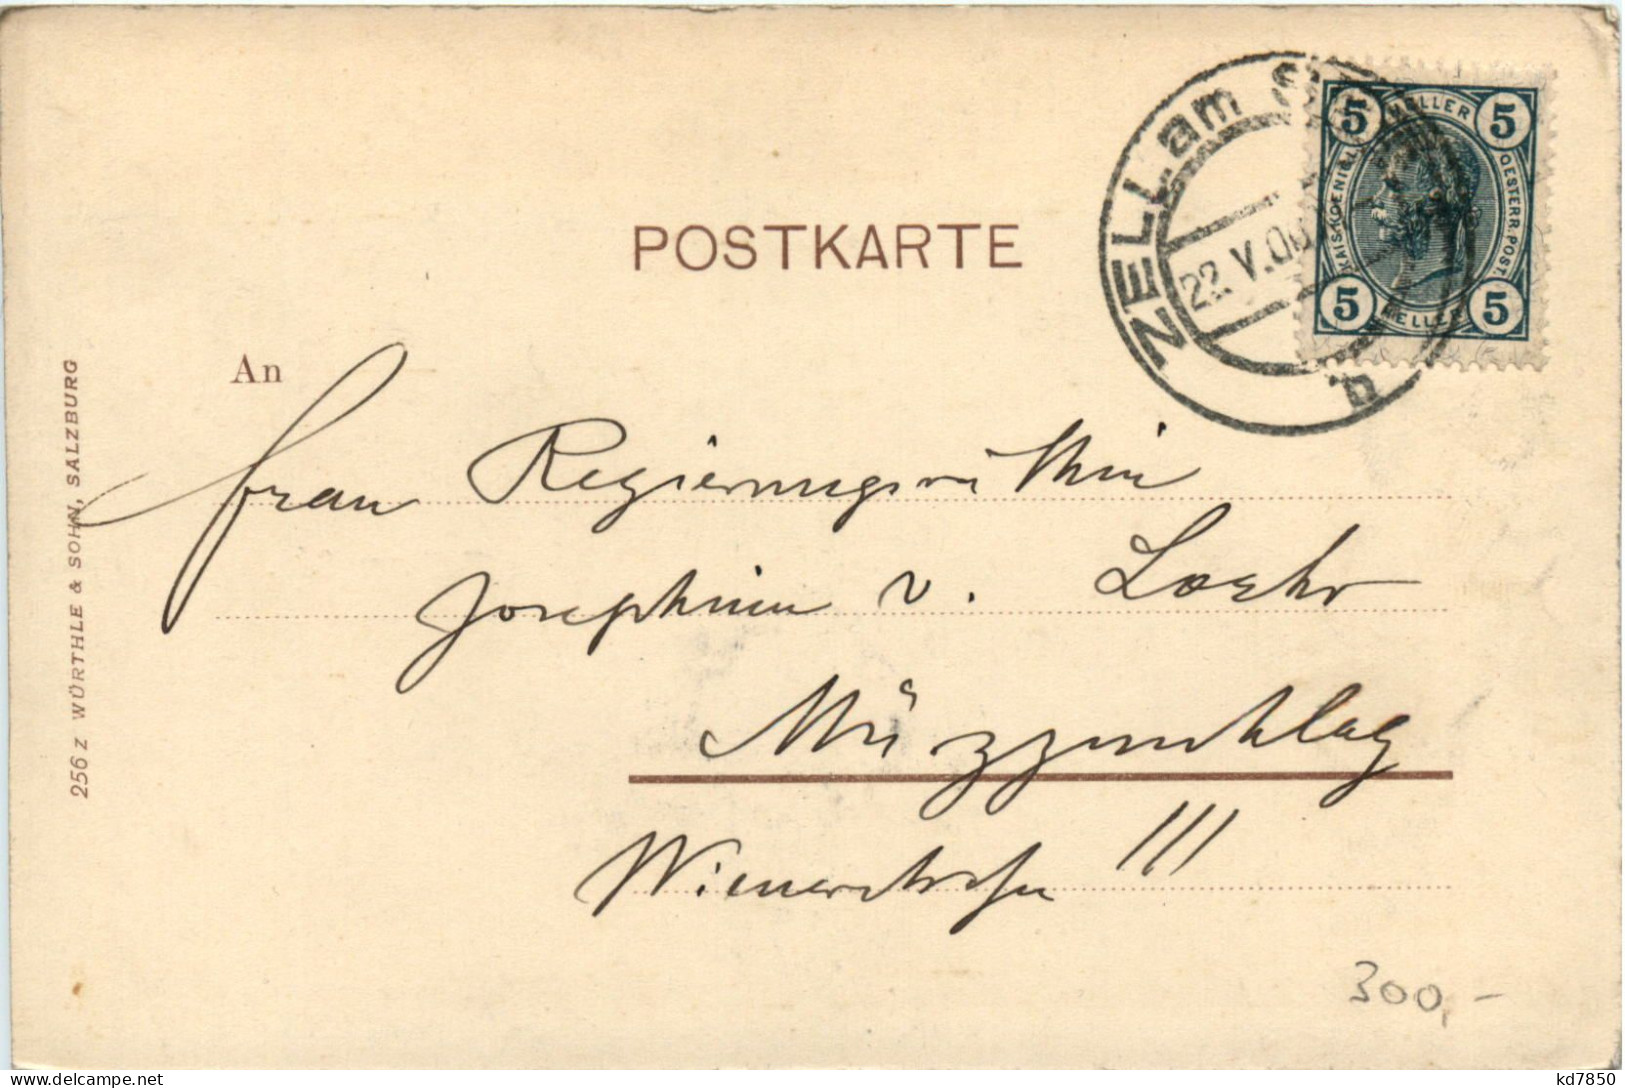 POSTKARTE
ZELL am
22. V. 06
b
5 HELLER 5
KAIS. KOENIGL. OESTERR. POST.
5 HELLER 5
An
Frau Regierungsräthin
Josephine v. Loehr
Mürzzuschlag
Wienerstrasse III
256 Z WÜRTHLE & SOHN, SALZBURG
300,-
kd7850